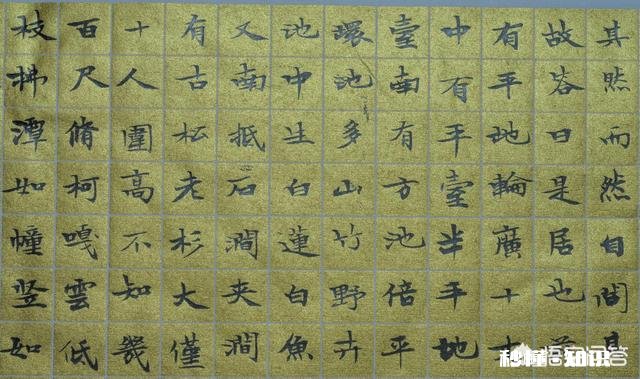 其然而然自問其
故答曰是居也前
有平地輪廣十丈
中有平臺半平地
臺南有方池倍平
環池多山竹野卉
池中生白蓮白魚
又南抵石澗夾澗
有古松老杉大僅
十人圍高不知幾
百尺脩柯嘎雲低
枝拂潭如幢竪如
悟空问答